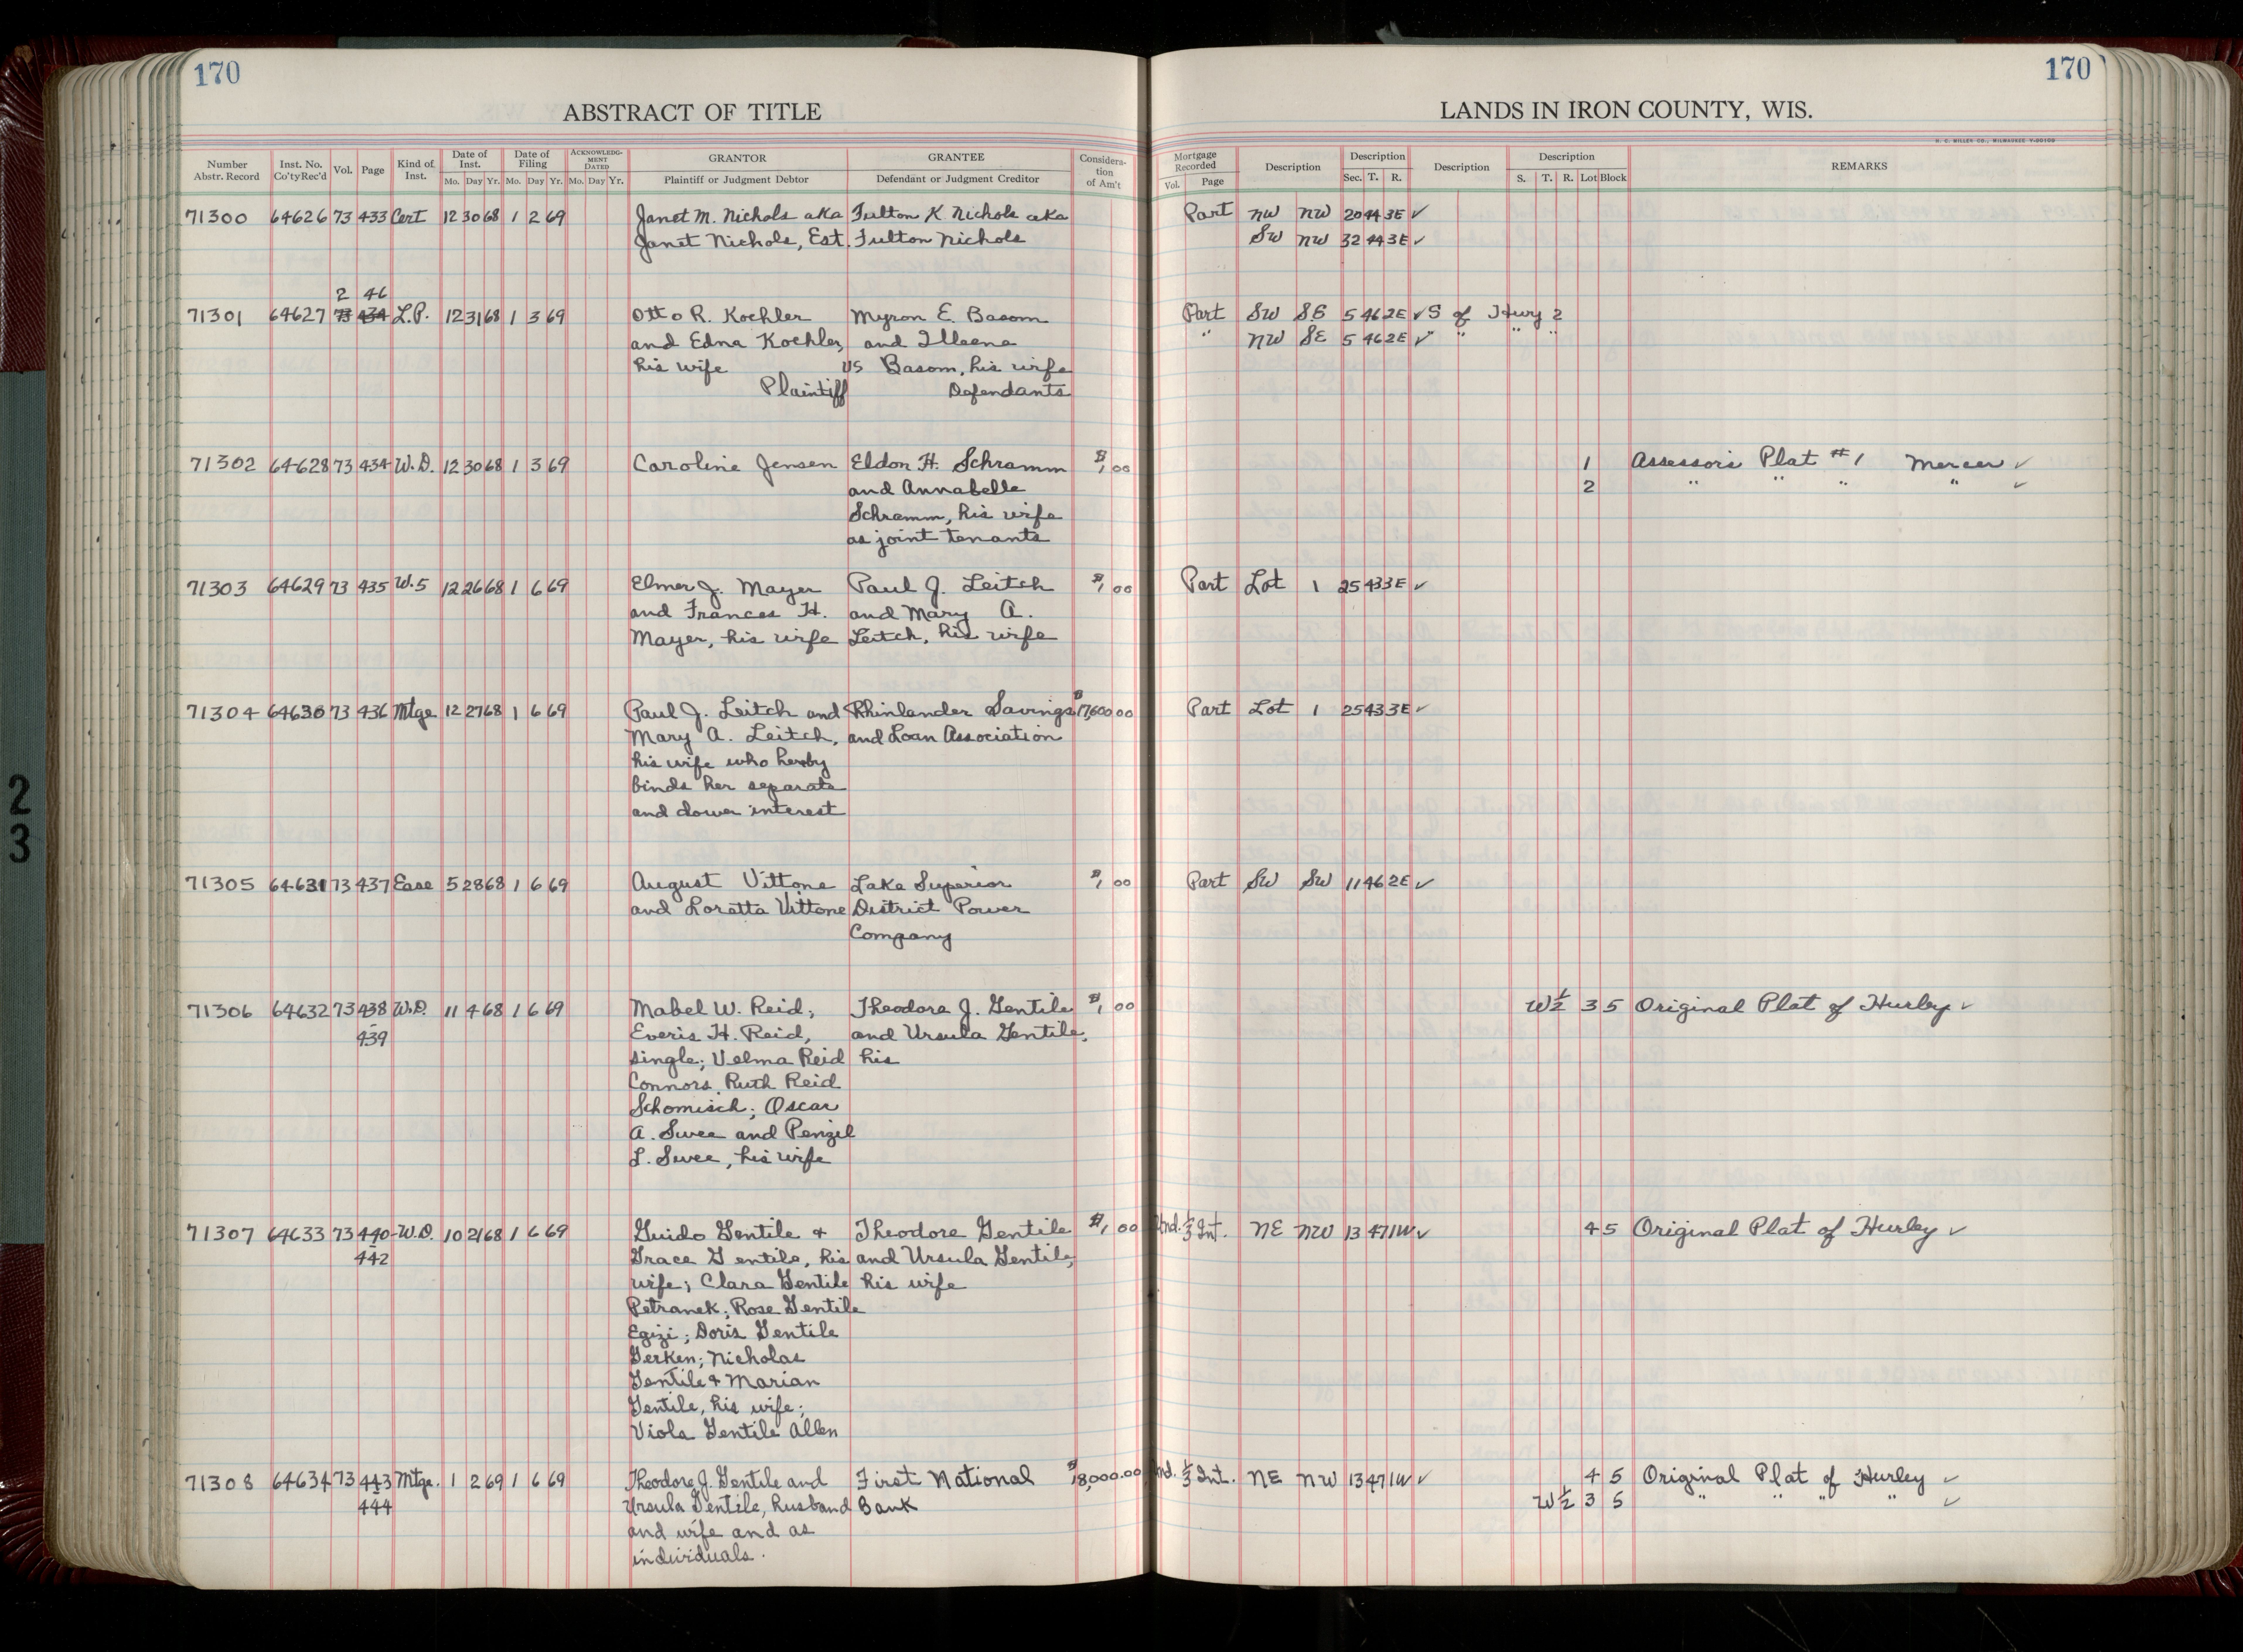 170
170
ABSTRACT OF TITLE
LANDS IN IRON COUNTY, WIS.
H. C. MILLER CO., MILWAUKEE
Number Abstr. Record Inst. No. Co'ty Rec'd Vol. Page Kind of Inst. Date of Inst. Mo. Day Yr. Date of Filing Mo. Day Yr. ACKNOWLEDGMENT DATED Mo. Day Yr. GRANTOR Plaintiff or Judgment Debtor GRANTEE Defendant or Judgment Creditor Consideration of Am't Mortgage Recorded Vol. Page Description Description Sec. T. R. Description Description S. T. R. Lot Block REMARKS
71300 64626 73 433 Cert 12 30 68 1 2 69 Janet M. Nichols aka Fulton K. Nichols aka Part NW NW 20 44 3E ✓
Janet Nichols, Est. Fulton Nichols SW NW 32 44 3E ✓
2 46
71301 64627 73 434 L.P. 12 31 68 1 3 69 Otto R. Koehler Myron E. Basom Part SW SE 5 46 2E ✓ S of Hwy 2
and Edna Koehler, and Illeene " NW SE 5 46 2E ✓ " " " "
his wife VS Basom, his wife
Plaintiff Defendants
71302 64628 73 434 W.D. 12 30 68 1 3 69 Caroline Jensen Eldon H. Schramm $1,00 1 Assessor's Plat #1 Mercer ✓
and Annabelle 2 " " " " ✓
Schramm, his wife
as joint tenants
71303 64629 73 435 W.5 12 26 68 1 6 69 Elmer J. Mayer Paul J. Leitch $1,00 Part Lot 1 25 43 3E ✓
and Frances H. and Mary A.
Mayer, his wife Leitch, his wife
71304 64630 73 436 Mtge 12 27 68 1 6 69 Paul J. Leitch and Rhinlander Savings $17,600 00 Part Lot 1 25 43 3E ✓
Mary A. Leitch, and Loan Association
his wife who hereby
binds her separate
and dower interest
71305 64631 73 437 Ease 5 28 68 1 6 69 August Vittone Lake Superior $1,00 Part SW SW 11 46 2E ✓
and Loretta Vittone District Power
Company
71306 64632 73 438 W.D. 11 4 68 1 6 69 Mabel W. Reid; Theodore J. Gentile $1,00 W½ 3 5 Original Plat of Hurley ✓
-439 Everis H. Reid, and Ursula Gentile,
single; Velma Reid his
Connors, Ruth Reid
Schomisch; Oscar
A. Swee and Penzil
L. Swee, his wife
71307 64633 73 440- W.D. 10 21 68 1 6 69 Guido Gentile & Theodore Gentile $1,00 Und. ⅓ Int. NE NW 13 47 1W ✓ 4 5 Original Plat of Hurley ✓
442 Grace Gentile, his and Ursula Gentile,
wife; Clara Gentile his wife
Petranek; Rose Gentile
Egizi; Doris Gentile
Gerken; Nicholas
Gentile & Marian
Gentile, his wife;
Viola Gentile Allen
71308 64634 73 443 Mtge. 1 2 69 1 6 69 Theodore J. Gentile and First National $18,000.00 Und. ⅓ Int. NE NW 13 47 1W ✓ 4 5 Original Plat of Hurley ✓
-444 Ursula Gentile, husband Bank W½ 3 5 " " " " ✓
and wife and as
individuals.
2
3